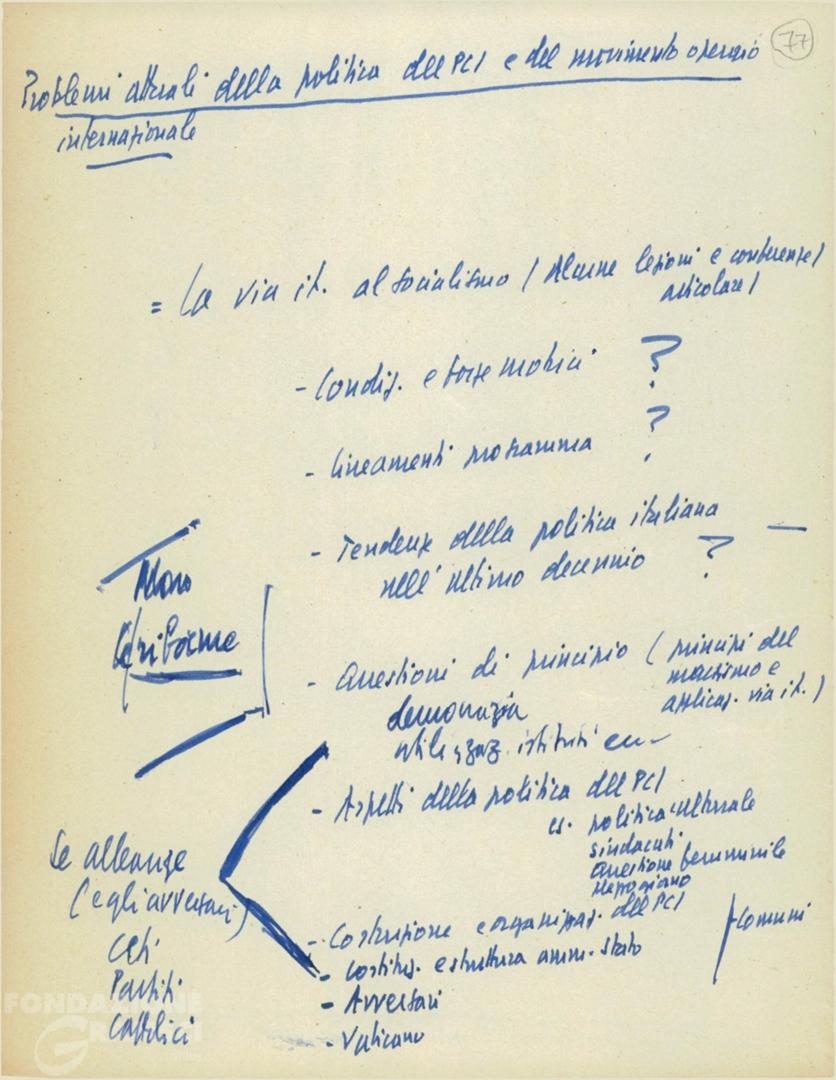 77
Problemi attuali della politica del PCI e del movimento operaio
internazionale
= La via it. al socialismo (Alcune lezioni e conferenze)
articolare)
- Condiz. e forze motrici ?
- Lineamenti programma ?
- Tendenze della politica italiana —
nell'ultimo decennio ?
Le riforme
- Questioni di principio (principi del
marxismo e
applicaz. via it.)
democrazia
utilizzaz. istituti ecc
- Aspetti della politica del PCI
es. politica culturale
sindacati
questione femminile
Mezzogiorno
Le alleanze
(e gli avversari)
Ceti
Partiti
Cattolici
- Costruzione e organizzaz. del PCI
- Costituz. e struttura amm. stato
Comuni
- Avversari
- Vaticano
FONDAZIONE
GRAMSCI